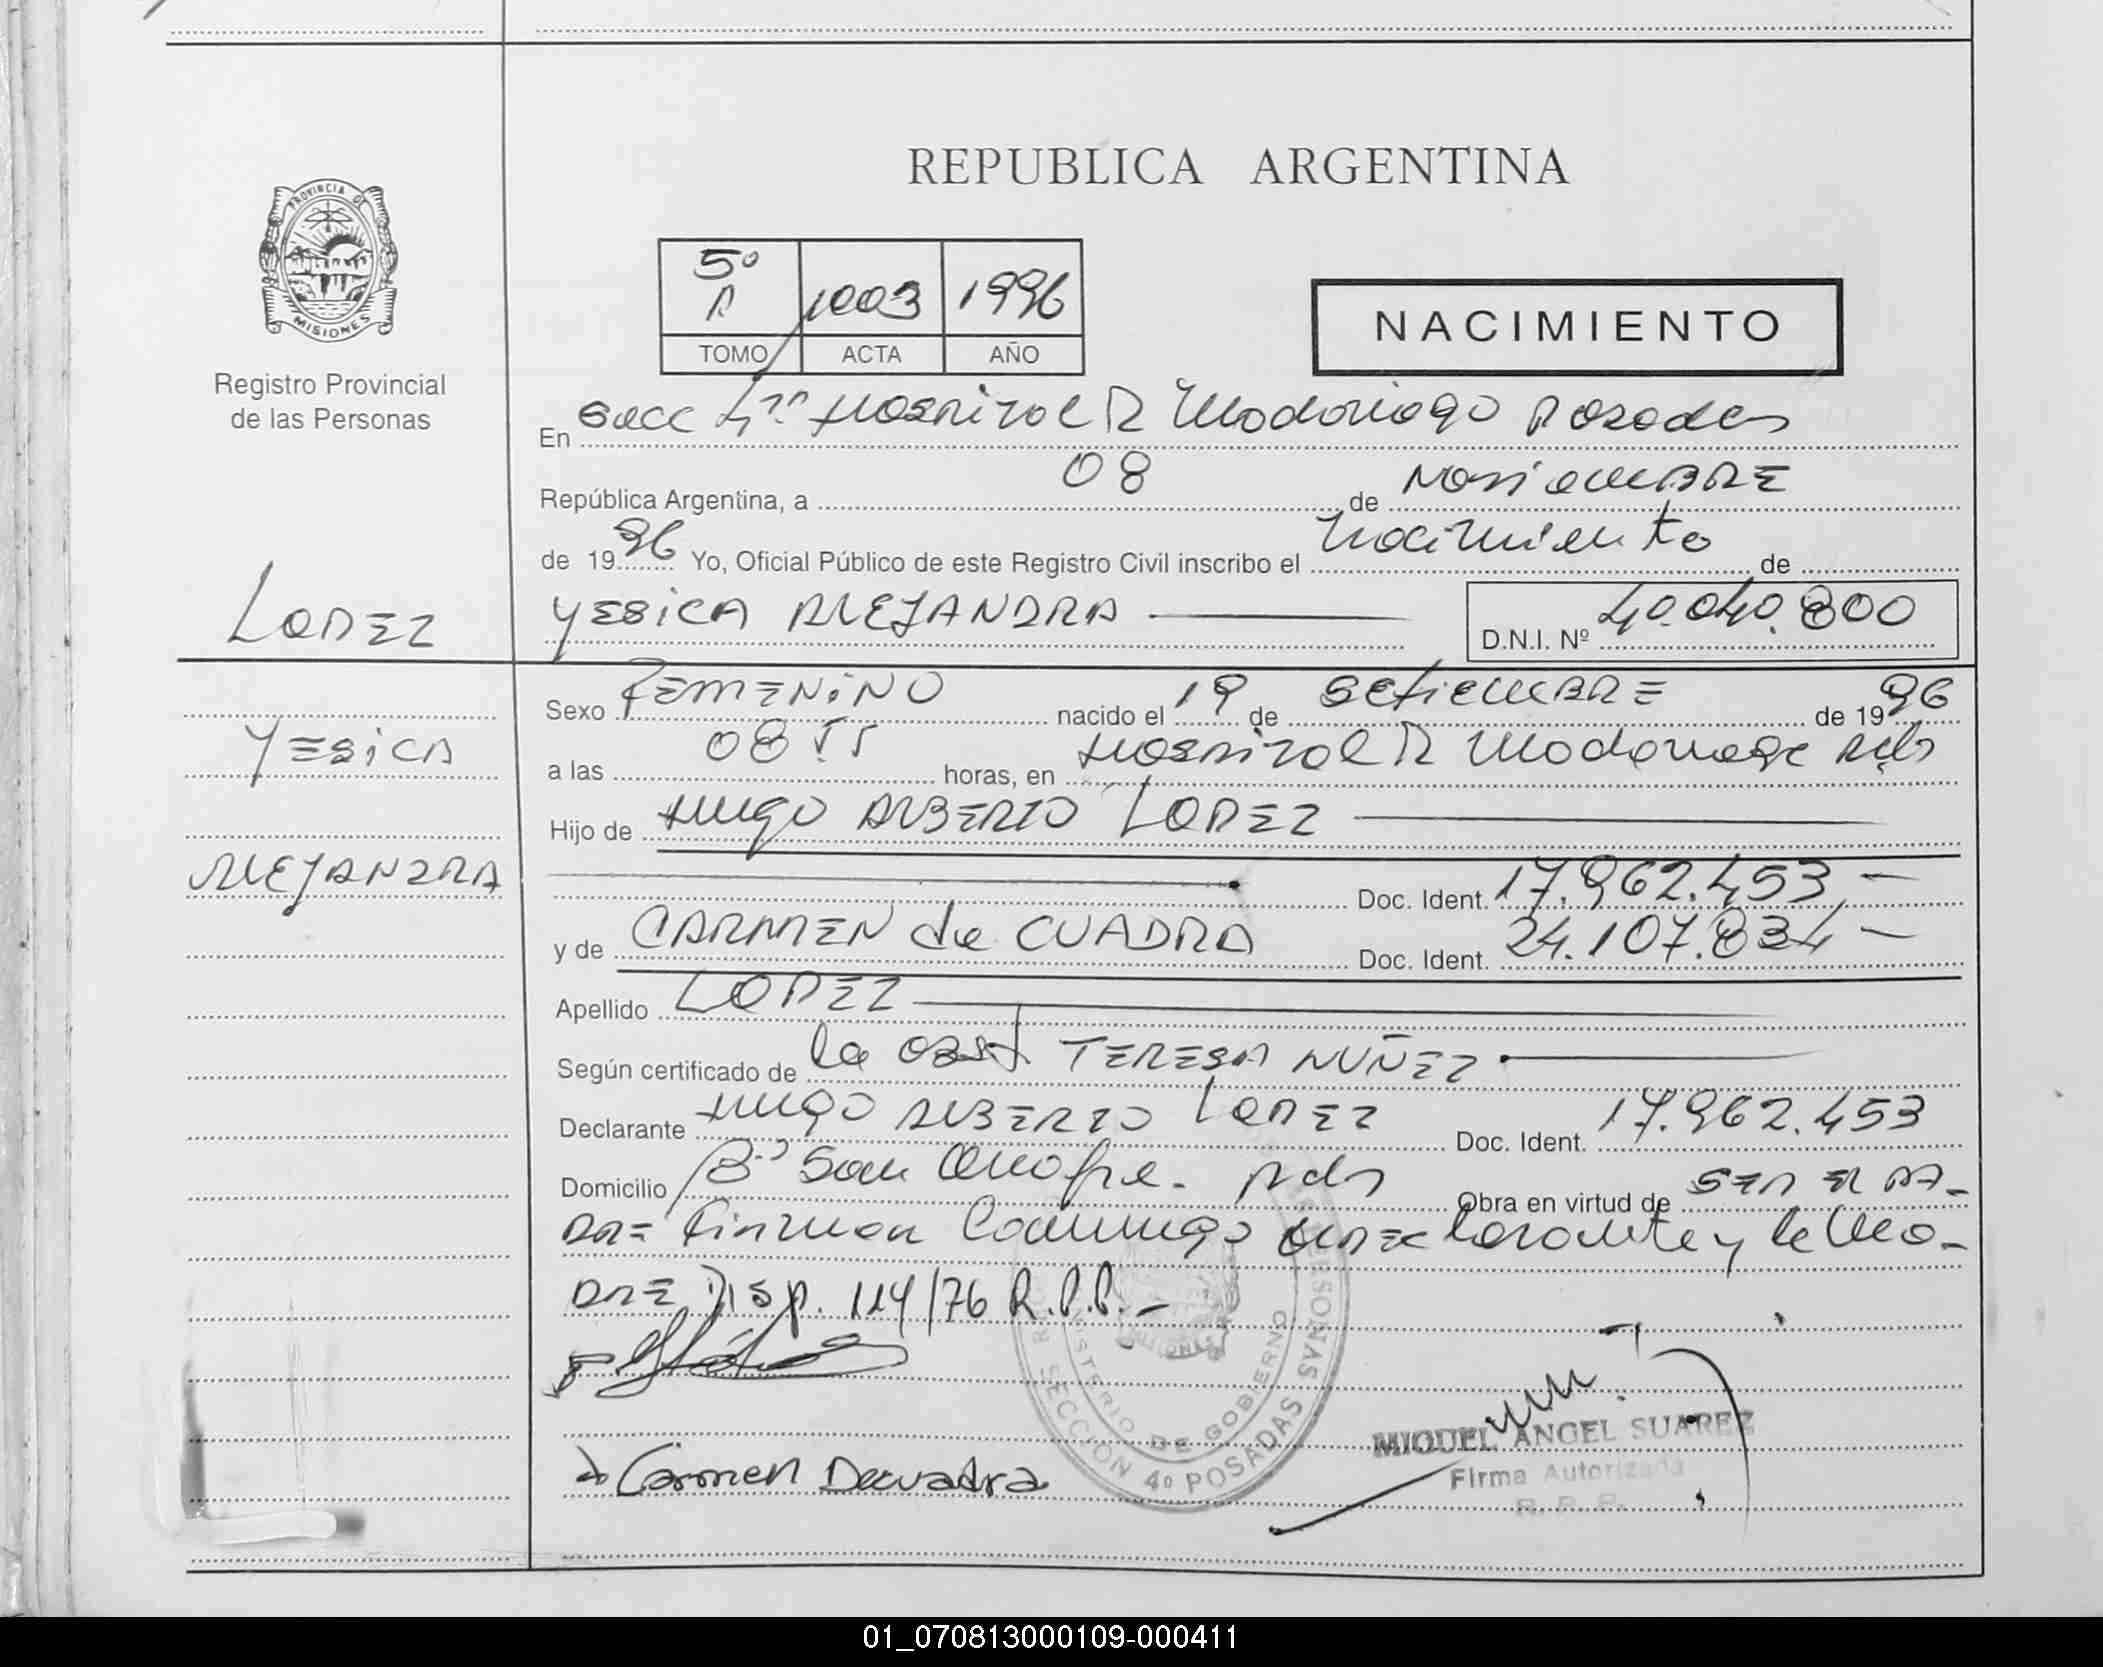 REPUBLICA ARGENTINA
PROVINCIA DE
MISIONES
Registro Provincial
de las Personas
5º 1003 1996
TOMO ACTA AÑO
NACIMIENTO
En Secc 4ta Hospital R Madariaga Posadas
República Argentina, a 08 de Noviembre
de 1996 Yo, Oficial Público de este Registro Civil inscribo el Nacimiento de
LOPEZ
YESICA ALEJANDRA
D.N.I. Nº 40.040.800
YESICA
ALEJANDRA
Sexo FEMENINO nacido el 19 de SETIEMBRE de 1996
a las 08 55 horas, en Hospital R Madariaga Pdas
Hijo de HUGO ALBERTO LOPEZ
Doc. Ident. 17.962.453
y de CARMEN de CUADRA Doc. Ident. 24.107.834
Apellido LOPEZ
Según certificado de la OBST TERESA NUÑEZ
Declarante HUGO ALBERTO LOPEZ Doc. Ident. 17.962.453
Domicilio Bº San Onofre. Pdas Obra en virtud de SER EL PA-
DRE Firman Conmigo el declarante y la Ma-
DRE Disp. 114/76 R.P.P.
Carmen Decuadra
MINISTERIO DE GOBIERNO
SECCION 4º POSADAS
MIGUEL ANGEL SUAREZ
Firma Autorizada
R. P. P.
01_070813000109-000411